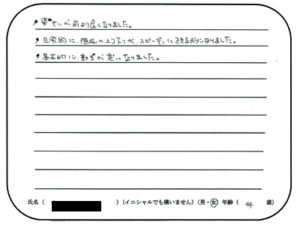 ・姿勢が前より良くなりました。
・日常的に、階段の上り下りが、スピーディにできるようになりました。
・基本的に、動きが楽になりました。
氏名（　　　　）（イニシャルでも構いません）（男・女）年齢（　　歳）